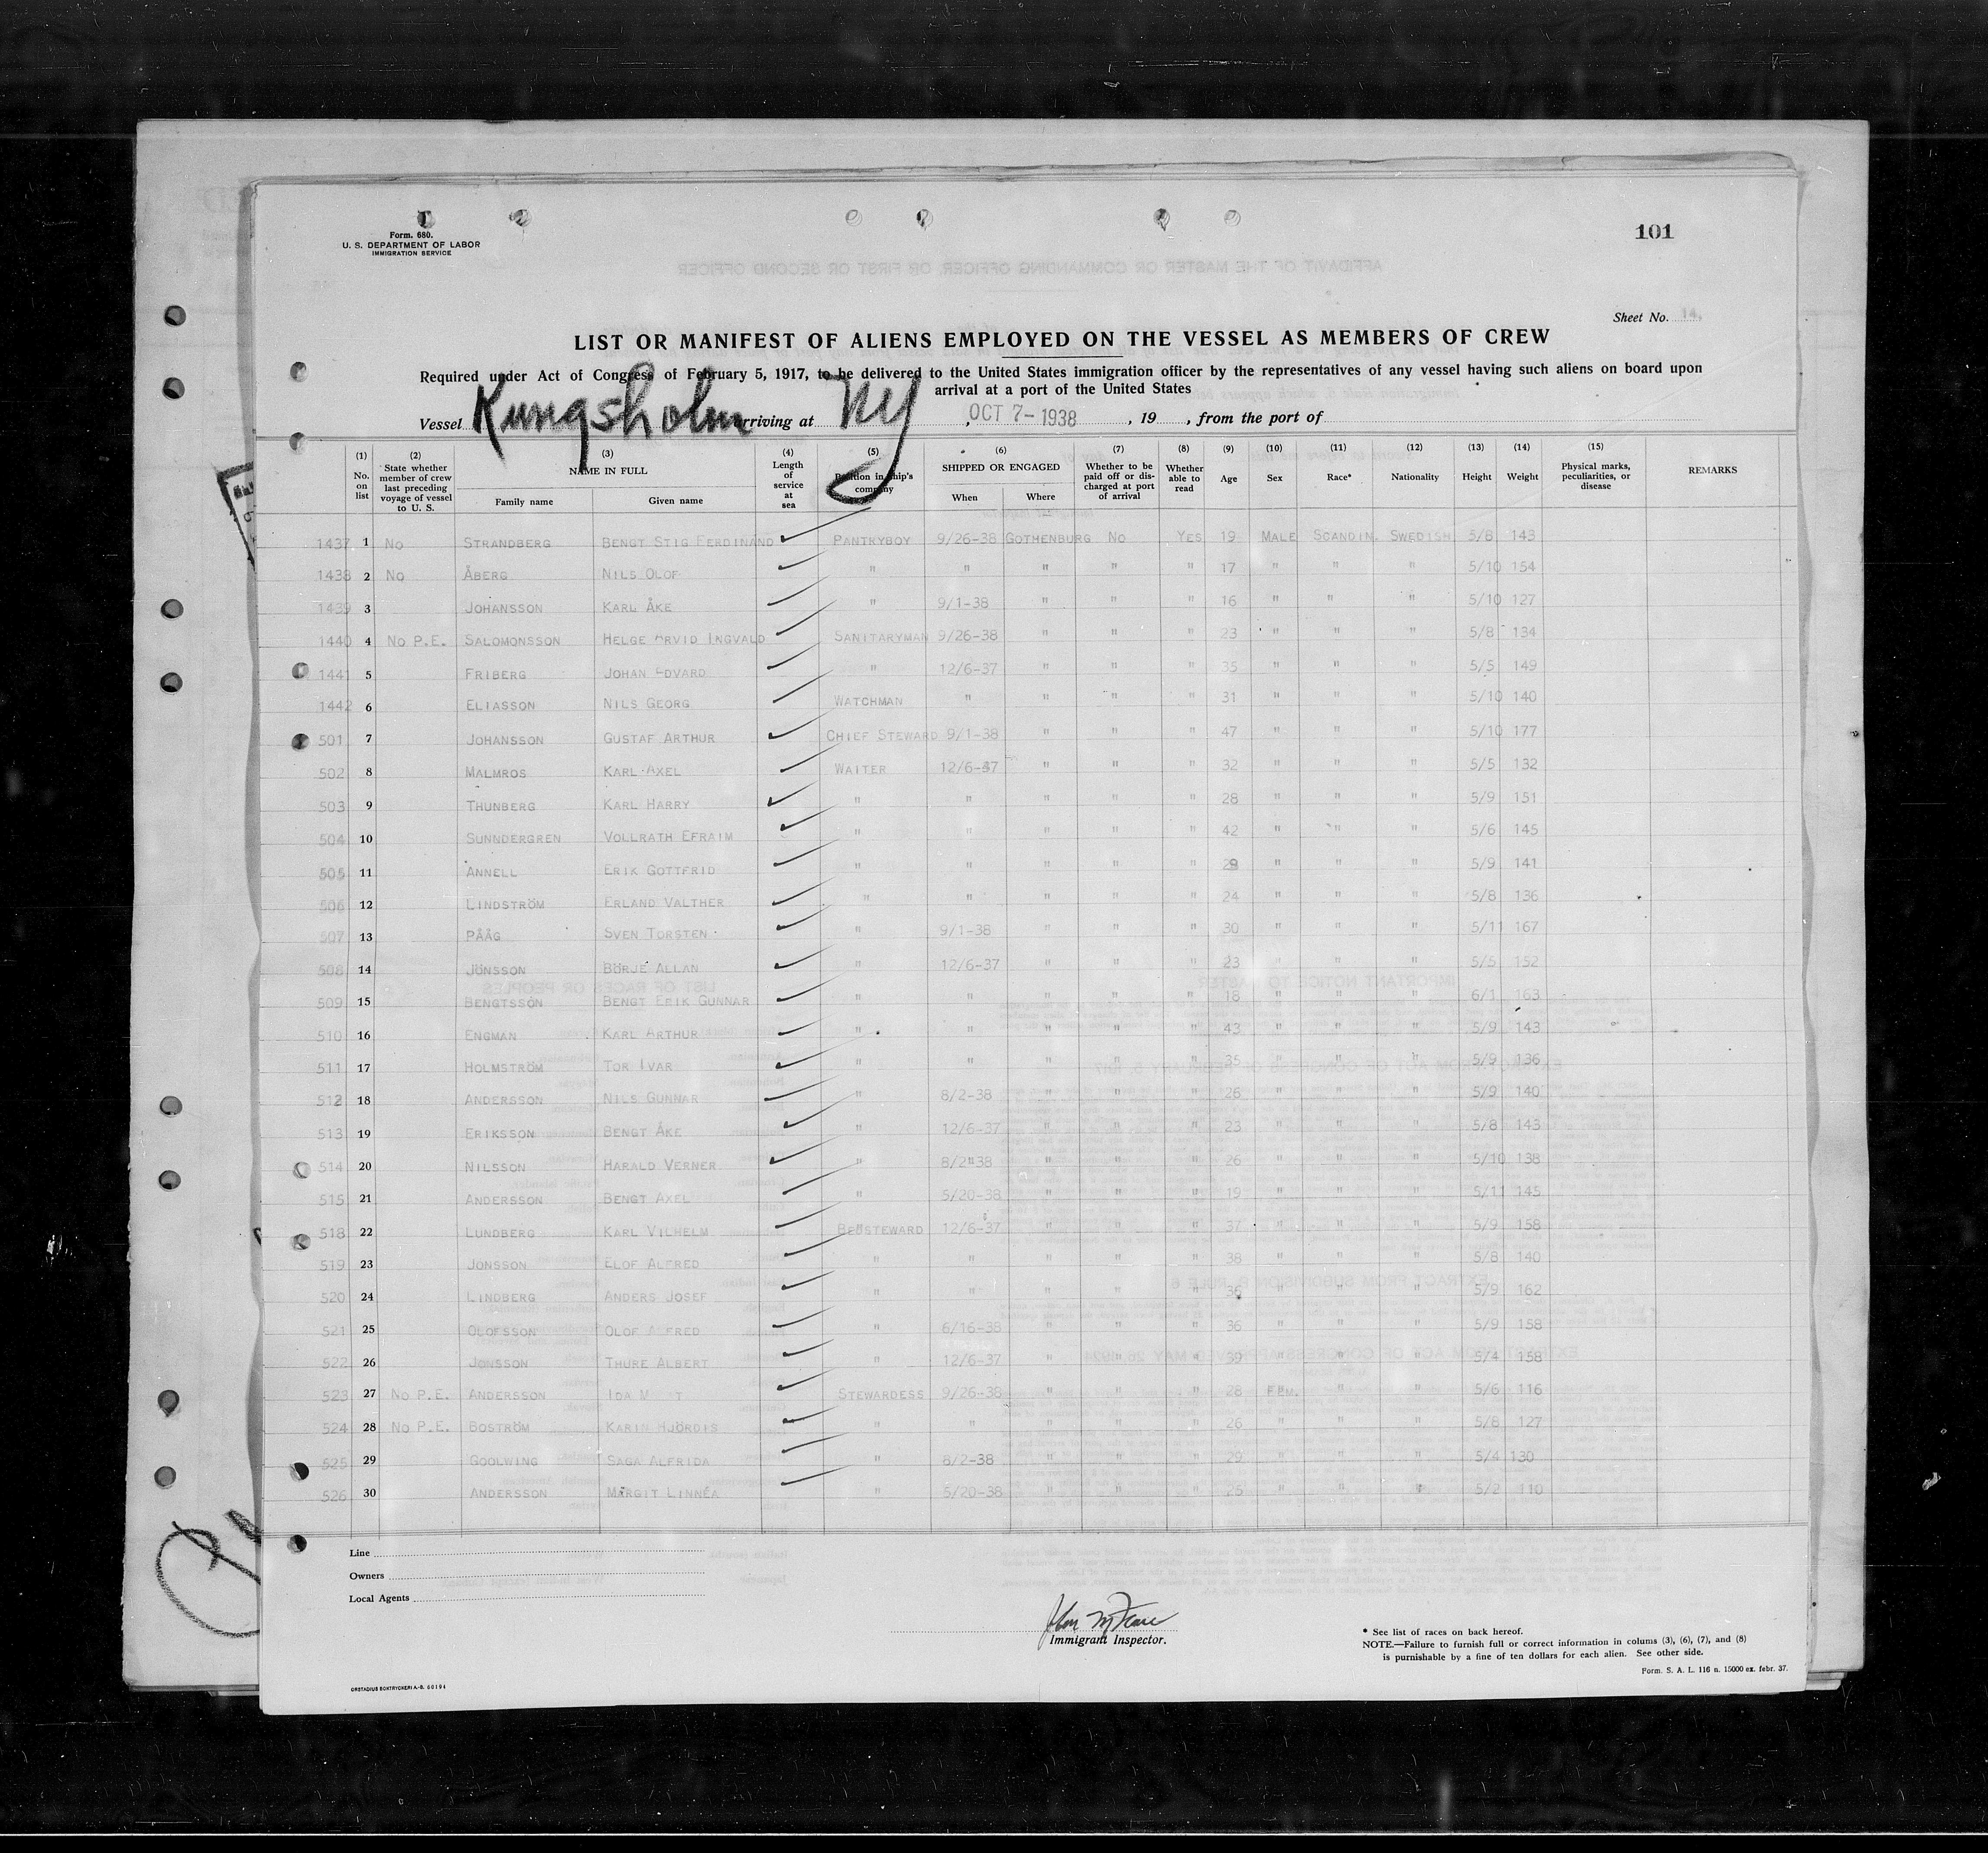 Form. 680.
U. S. DEPARTMENT OF LABOR
IMMIGRATION SERVICE
101
Sheet No. 14.
LIST OR MANIFEST OF ALIENS EMPLOYED ON THE VESSEL AS MEMBERS OF CREW
Required under Act of Congress of February 5, 1917, to be delivered to the United States immigration officer by the representatives of any vessel having such aliens on board upon
arrival at a port of the United States
Vessel Kungsholm arriving at NY, OCT 7-1938, 19 , from the port of
(1) No. on list (2) State whether member of crew last preceding voyage of vessel to U. S. (3) NAME IN FULL Family name Given name (4) Length of service at sea (5) Position in ship's company (6) SHIPPED OR ENGAGED When Where (7) Whether to be paid off or discharged at port of arrival (8) Whether able to read (9) Age (10) Sex (11) Race* (12) Nationality (13) Height (14) Weight (15) Physical marks, peculiarities, or disease REMARKS
1437 1 No STRANDBERG BENGT STIG FERDINAND PANTRYBOY 9/26-38 GOTHENBURG No YES 19 MALE SCANDIN. SWEDISH 5/8 143
1438 2 No ÅBERG NILS OLOF " " " " " 17 " " " 5/10 154
1439 3 JOHANSSON KARL ÅKE " 9/1-38 " " " 16 " " " 5/10 127
1440 4 No P.E. SALOMONSSON HELGE ARVID INGVALD SANITARYMAN 9/26-38 " " " 23 " " " 5/8 134
1441 5 FRIBERG JOHAN EDVARD " 12/6-37 " " " 35 " " " 5/5 149
1442 6 ELIASSON NILS GEORG WATCHMAN " " " " 31 " " " 5/10 140
501 7 JOHANSSON GUSTAF ARTHUR CHIEF STEWARD 9/1-38 " " " 47 " " " 5/10 177
502 8 MALMROS KARL AXEL WAITER 12/6-37 " " " 32 " " " 5/5 132
503 9 THUNBERG KARL HARRY " " " " " 28 " " " 5/9 151
504 10 SUNNDERGREN VOLLRATH EFRAIM " " " " " 42 " " " 5/6 145
505 11 ANNELL ERIK GOTTFRID " " " " " 29 " " " 5/9 141
506 12 LINDSTRÖM ERLAND VALTHER " " " " " 24 " " " 5/8 136
507 13 PÅÅG SVEN TORSTEN " 9/1-38 " " " 30 " " " 5/11 167
508 14 JÖNSSON BÖRJE ALLAN " 12/6-37 " " " 23 " " " 5/5 152
509 15 BENGTSSON BENGT ERIK GUNNAR " " " " " 18 " " " 6/1 163
510 16 ENGMAN KARL ARTHUR " " " " " 43 " " " 5/9 143
511 17 HOLMSTRÖM TOR IVAR " " " " " 35 " " " 5/9 136
512 18 ANDERSSON NILS GUNNAR " 8/2-38 " " " 26 " " " 5/9 140
513 19 ERIKSSON BENGT ÅKE " 12/6-37 " " " 23 " " " 5/8 143
514 20 NILSSON HARALD VERNER " 8/2-38 " " " 26 " " " 5/10 138
515 21 ANDERSSON BENGT AXEL " 5/20-38 " " " 19 " " " 5/11 145
518 22 LUNDBERG KARL VILHELM BEDSTEWARD 12/6-37 " " " 37 " " " 5/9 158
519 23 JONSSON ELOF ALFRED " " " " " 38 " " " 5/8 140
520 24 LINDBERG ANDERS JOSEF " " " " " 36 " " " 5/9 162
521 25 OLOFSSON OLOF ALFRED " 6/16-38 " " " 36 " " " 5/9 158
522 26 JONSSON THURE ALBERT " 12/6-37 " " " 39 " " " 5/4 158
523 27 No P.E. ANDERSSON IDA STEWARDESS 9/26-38 " " " 28 FEM. " " 5/6 116
524 28 No P.E. BOSTRÖM KARIN HJÖRDIS " " " " " 26 " " " 5/8 127
525 29 GOOLWING SAGA ALFRIDA " 8/2-38 " " " 29 " " " 5/4 130
526 30 ANDERSSON MARGIT LINNÉA " 5/20-38 " " " 25 " " " 5/2 110
Line
Owners
Local Agents
Immigrant Inspector.
* See list of races on back hereof.
NOTE.—Failure to furnish full or correct information in colums (3), (6), (7), and (8)
is purnishable by a fine of ten dollars for each alien. See other side.
Form. S. A. L. 116 n. 15000 ex. febr. 37.
ORSTADIUS BOKTRYCKERI A.-B. 60194